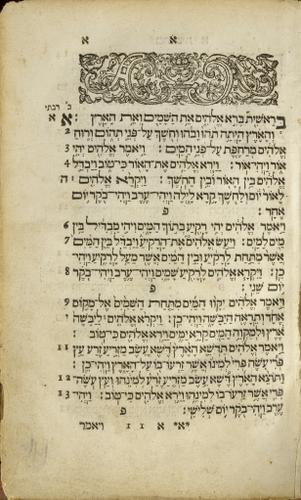 א א
ב׳ רבתי
בראשית ברא אלהים את השמים ואת הארץ: א
2 והארץ היתה תהו ובהו וחשך על־פני תהום ורוח
3 אלהים מרחפת על־פני המים: ויאמר אלהים יהי
4 אור ויהי־אור: וירא אלהים את־האור כי־טוב ויבדל
ה אלהים בין האור ובין החשך: ויקרא אלהים
לאור יום ולחשך קרא לילה ויהי־ערב ויהי־בקר יום
אחד: פ
6 ויאמר אלהים יהי רקיע בתוך המים ויהי מבדיל בין
7 מים למים: ויעש אלהים את־הרקיע ויבדל בין המים
אשר מתחת לרקיע ובין המים אשר מעל לרקיע ויהי־
8 כן: ויקרא אלהים לרקיע שמים ויהי־ערב ויהי־בקר
יום שני: פ
9 ויאמר אלהים יקוו המים מתחת השמים אל־מקום
י אחד ותראה היבשה ויהי־כן: ויקרא אלהים ליבשה
ארץ ולמקוה המים קרא ימים וירא אלהים כי־טוב:
11 ויאמר אלהים תדשא הארץ דשא עשב מזריע זרע עץ
פרי עשה פרי למינו אשר זרעו־בו על־הארץ ויהי־כן:
12 ותוצא הארץ דשא עשב מזריע זרע למינהו ועץ עשה־
13 פרי אשר זרעו־בו למינהו וירא אלהים כי־טוב: ויהי־
ערב ויהי־בקר יום שלישי: פ
ויאמר